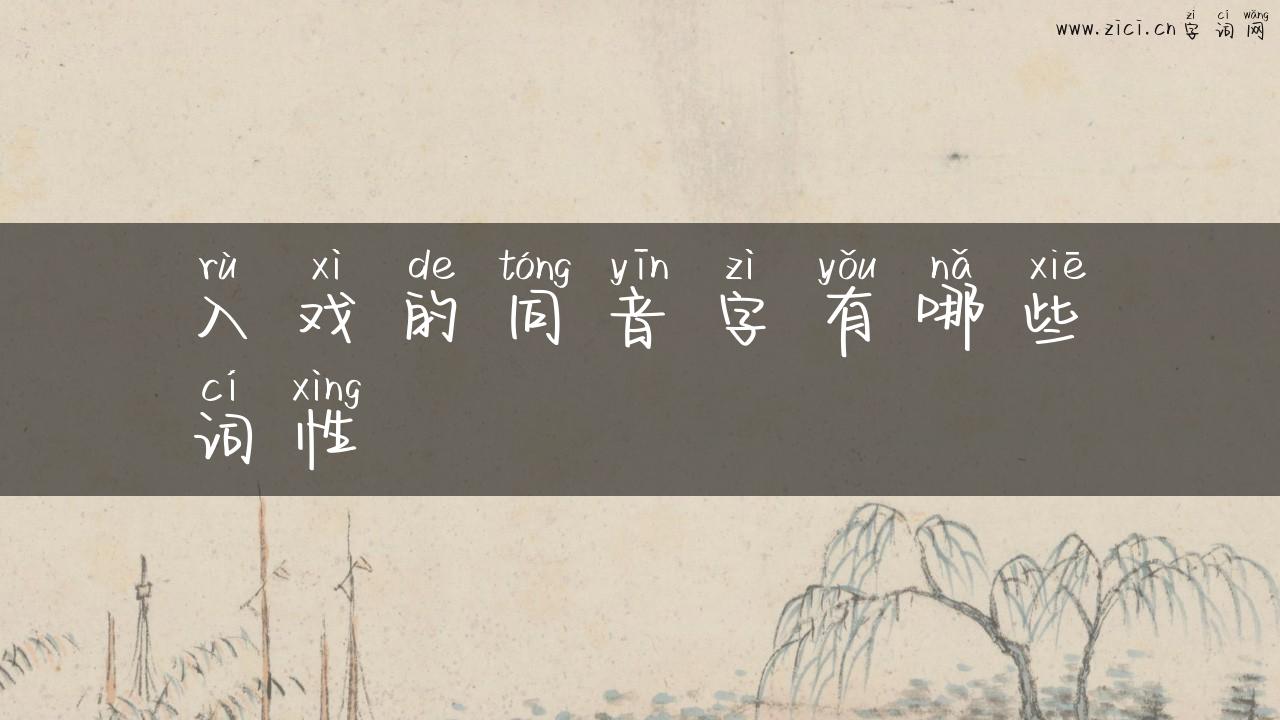 zì cí wǎng
www.zici.cn 字词网
rù xì de tóng yīn zì yǒu nǎ xiē
入戏的同音字有哪些
cí xìng
词性